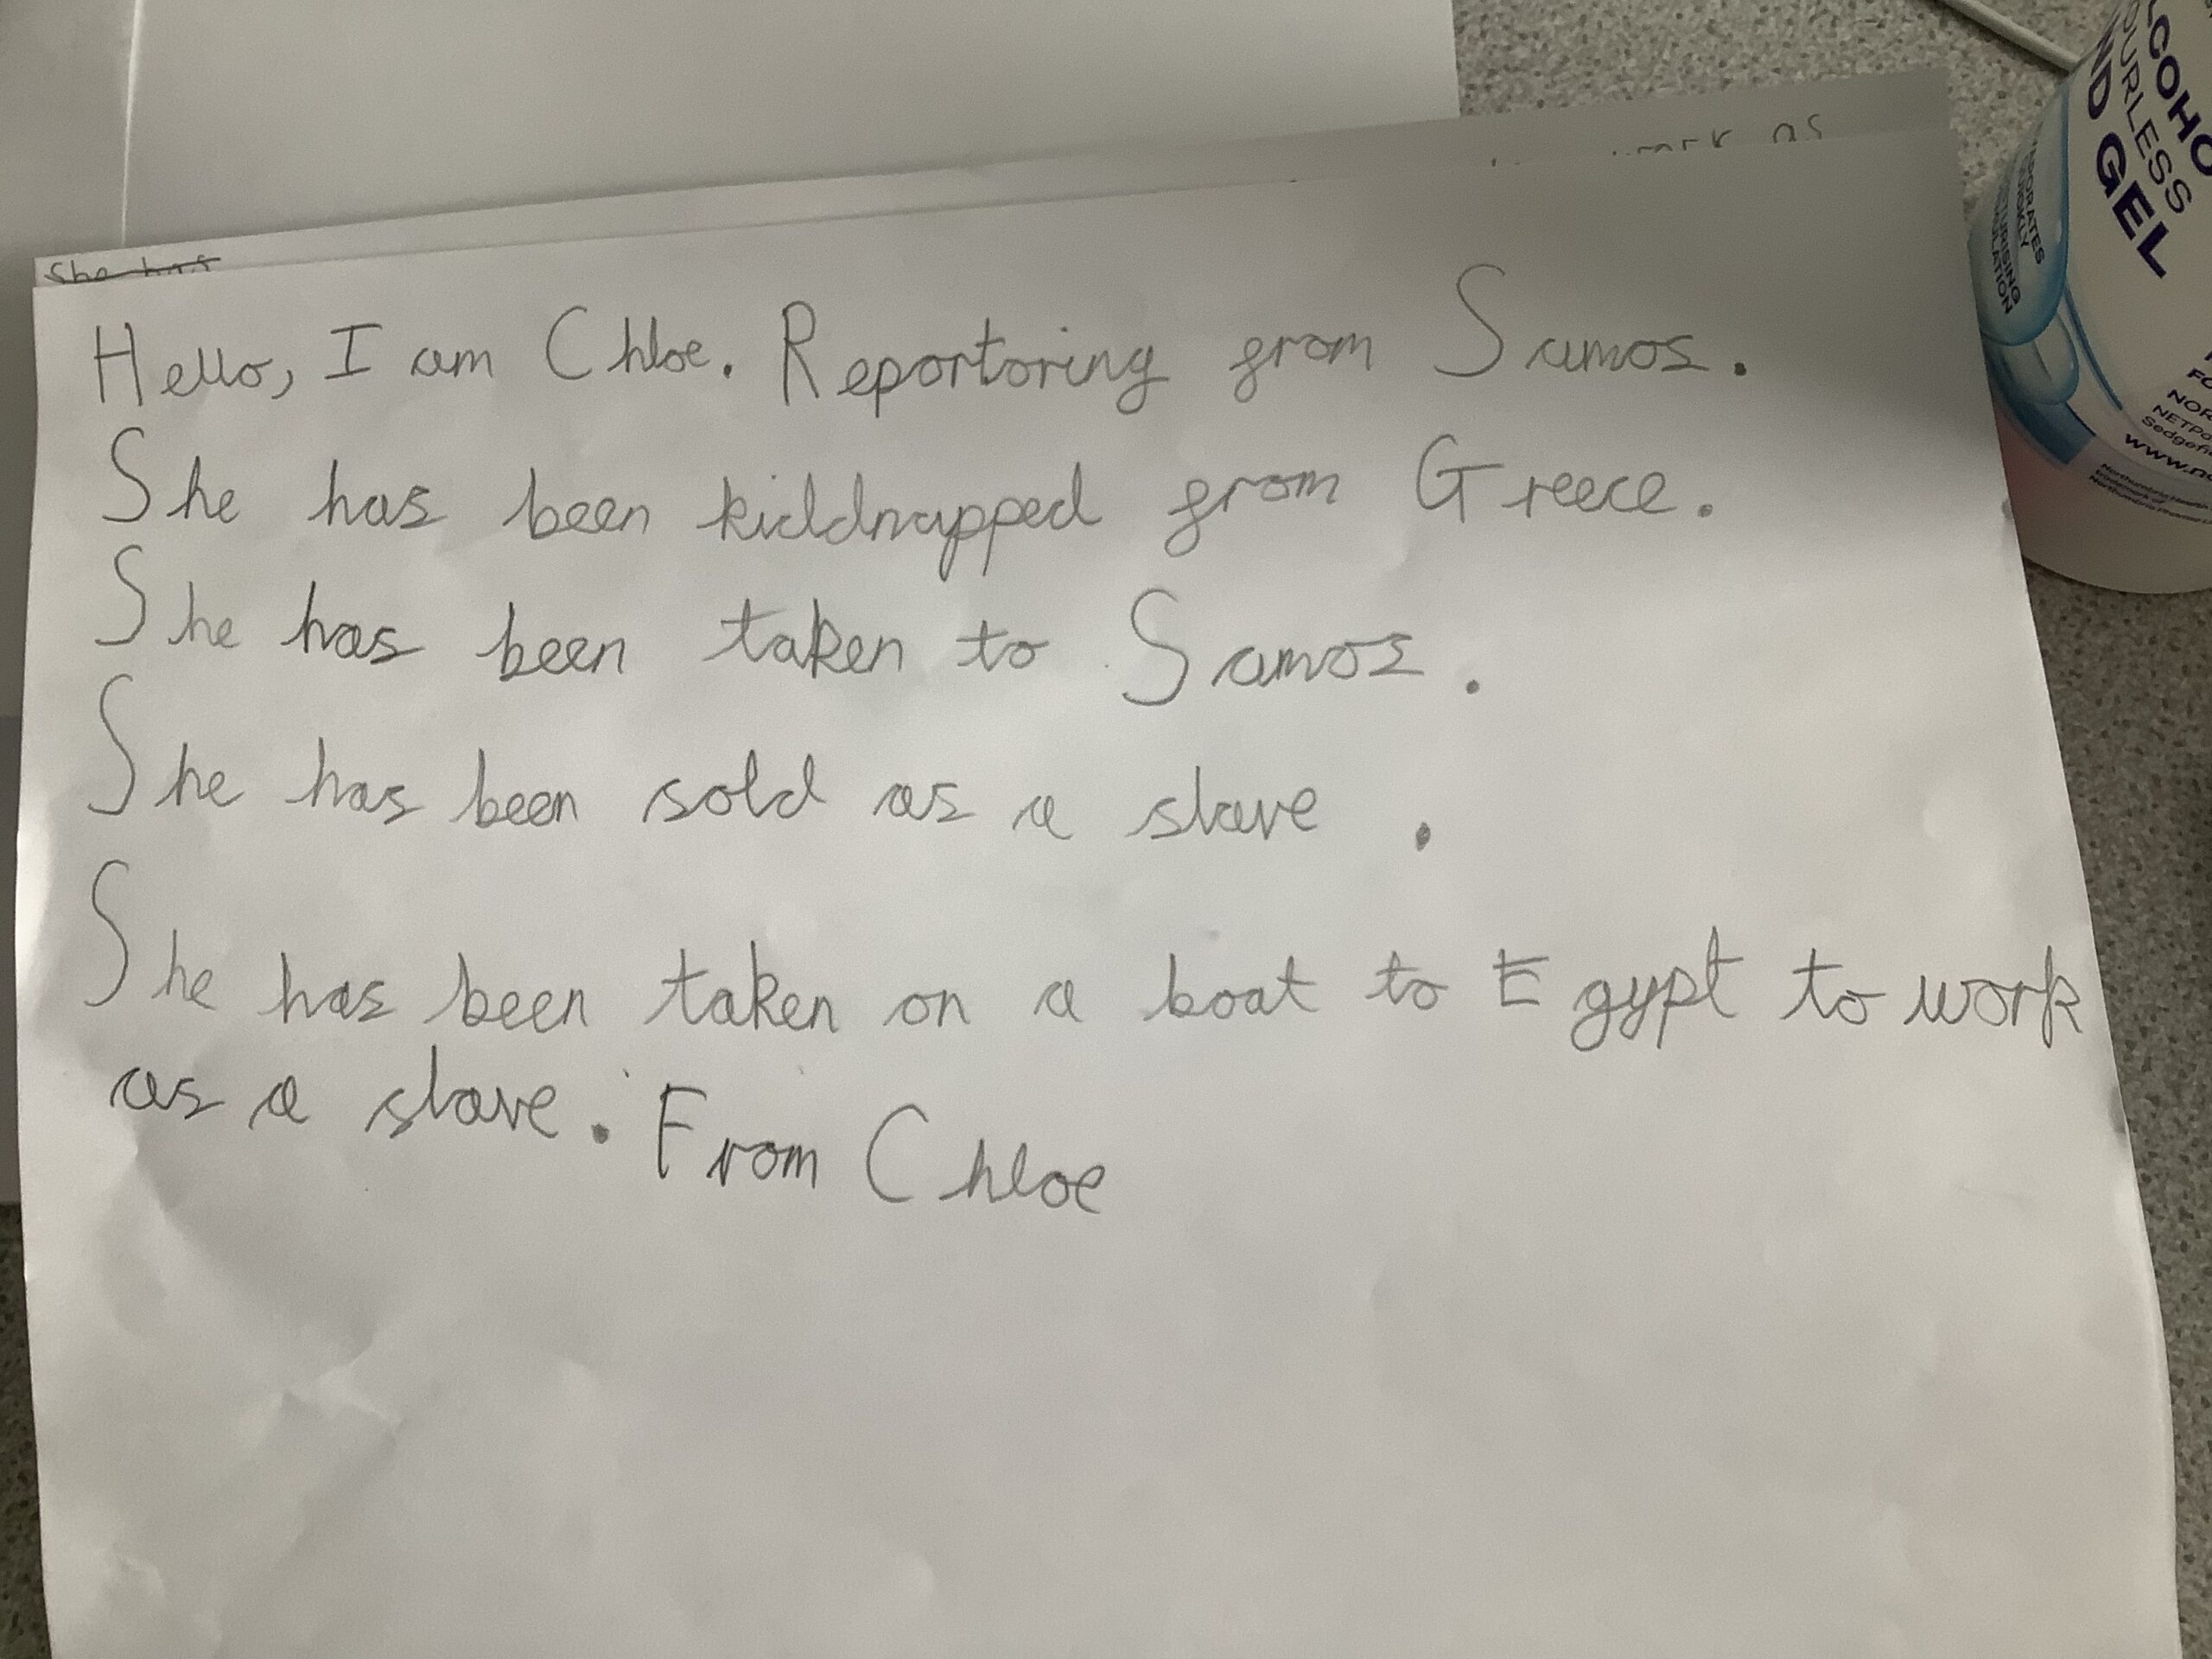 She has
Hello, I am Chloe. Reportoring from Samos.
She has been kiddnapped from Greece.
She has been taken to Samos.
She has been sold as a slave.
She has been taken on a boat to Egypt to work
as a slave. From Chloe
GEL